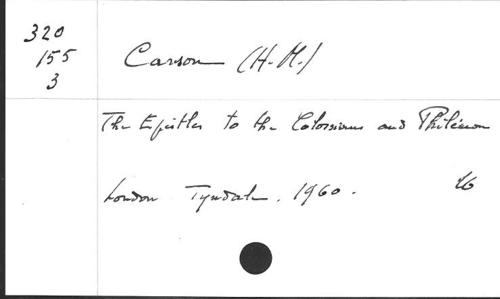 320
155
3
Carson (H. M.)
The Epistles to the Colossians and Philémon
London Tyndale. 1960.